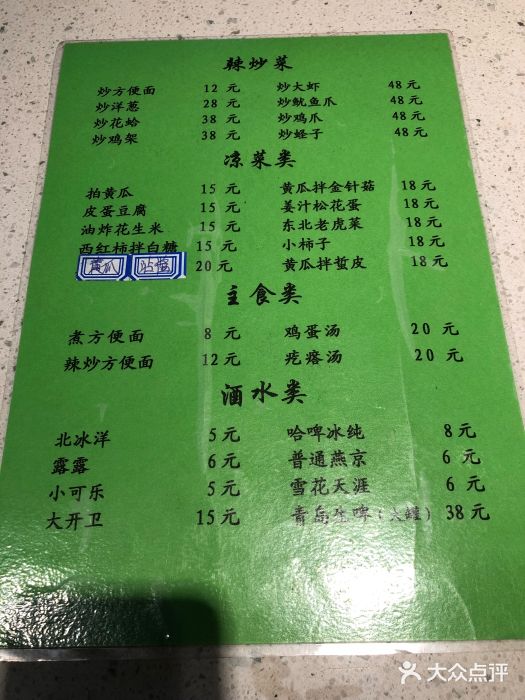 辣炒菜
炒方便面 12 元 炒大虾 48 元
炒洋葱 28 元 炒鱿鱼爪 48 元
炒花蛤 38 元 炒鸡爪 48 元
炒鸡架 38 元 炒蛏子 48 元
凉菜类
拍黄瓜 15 元 黄瓜拌金针菇 18 元
皮蛋豆腐 15 元 姜汁松花蛋 18 元
油炸花生米 15 元 东北老虎菜 18 元
西红柿拌白糖 15 元 小柿子 18 元
黄瓜 沾酱 20 元 黄瓜拌蜇皮 18 元
主食类
煮方便面 8 元 鸡蛋汤 20 元
辣炒方便面 12 元 疙瘩汤 20 元
酒水类
北冰洋 5 元 哈啤冰纯 8 元
露露 6 元 普通燕京 6 元
小可乐 5 元 雪花天涯 6 元
大开卫 15 元 青岛生啤（大罐）38 元
大众点评